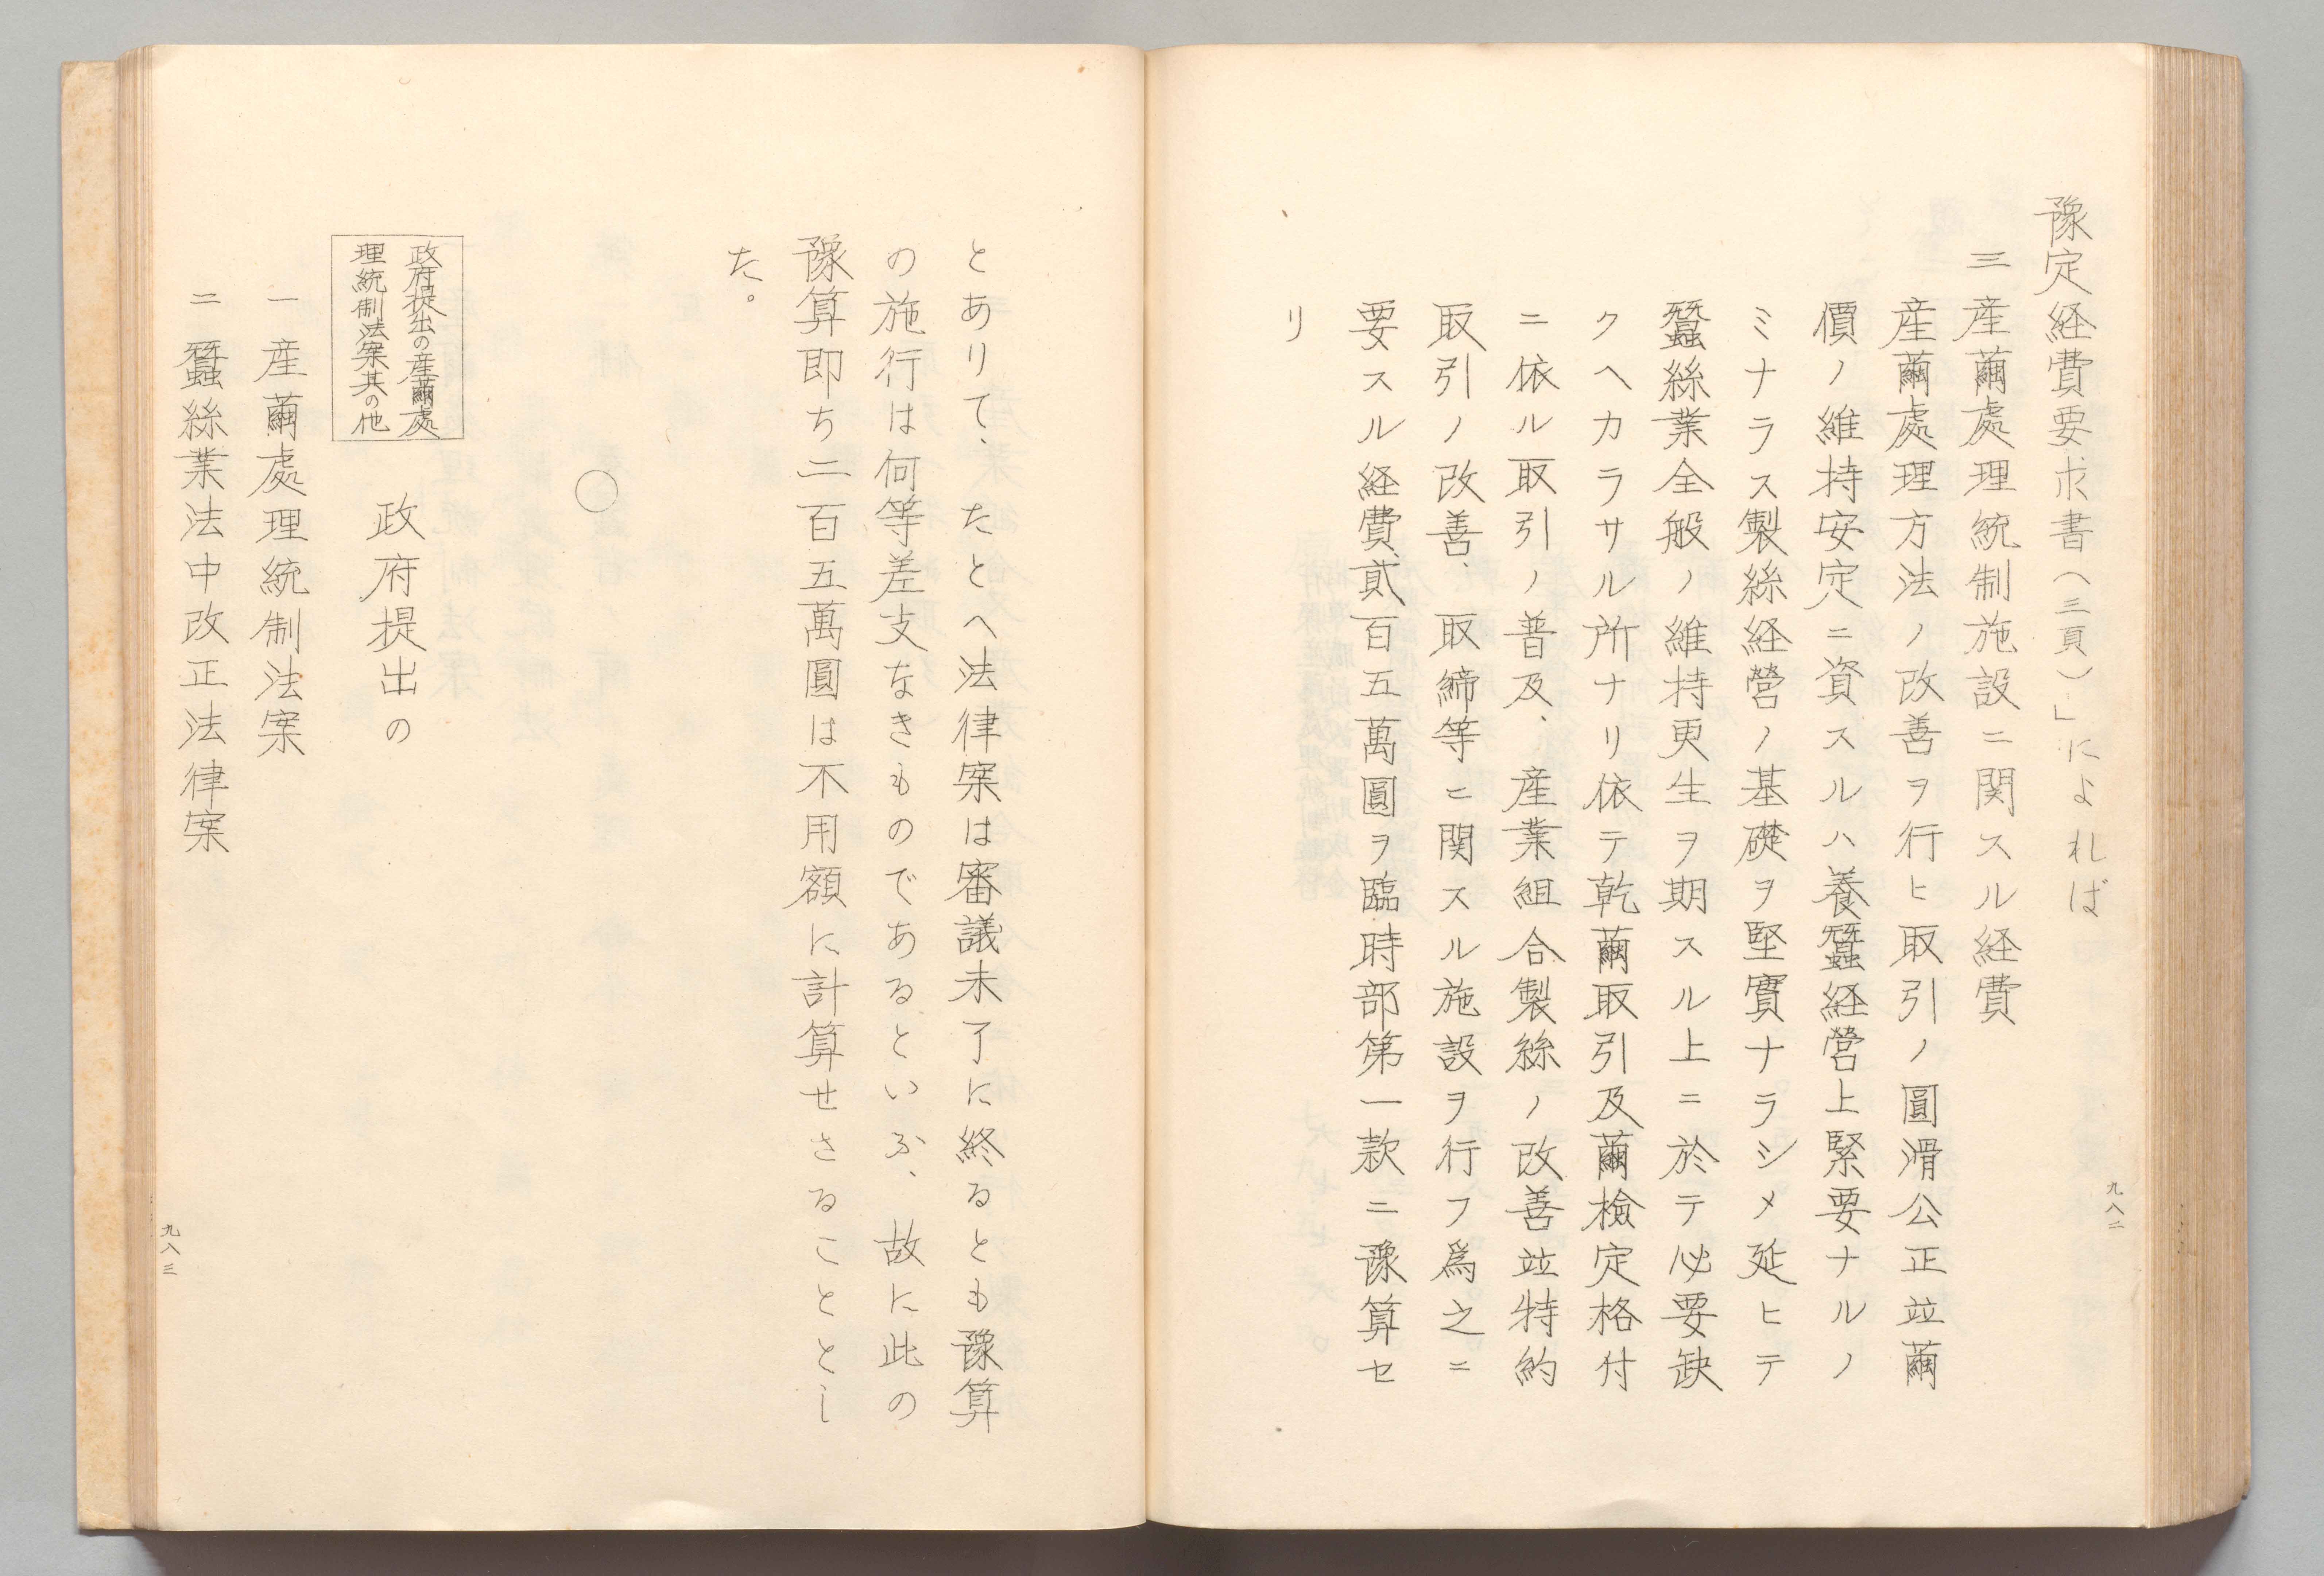 豫定経費要求書（三頁）」によれば
三 産繭處理統制施設ニ関スル経費
産繭處理方法ノ改善ヲ行ヒ取引ノ圓滑公正竝繭
價ノ維持安定ニ資スルハ養蠶経営上緊要ナルノ
ミナラス製絲経営ノ基礎ヲ堅實ナラシメ延ヒテ
蠶絲業全般ノ維持更生ヲ期スル上ニ於テ必要缺
クヘカラサル所ナリ依テ乾繭取引及繭檢定格付
ニ依ル取引ノ普及、産業組合製絲ノ改善竝特約
取引ノ改善、取締等ニ関スル施設ヲ行フ爲之ニ
要スル経費貳百五萬圓ヲ臨時部第一款ニ豫算セ
リ
九八二
とありて、たとへ法律案は審議未了に終るとも豫算
の施行は何等差支なきものであるといふ、故に此の
豫算即ち二百五萬圓は不用額に計算せさることとし
た。
○
政府提出の産繭處
理統制法案其の他
政府提出の
一 産繭處理統制法案
二 蠶絲業法中改正法律案
九八三